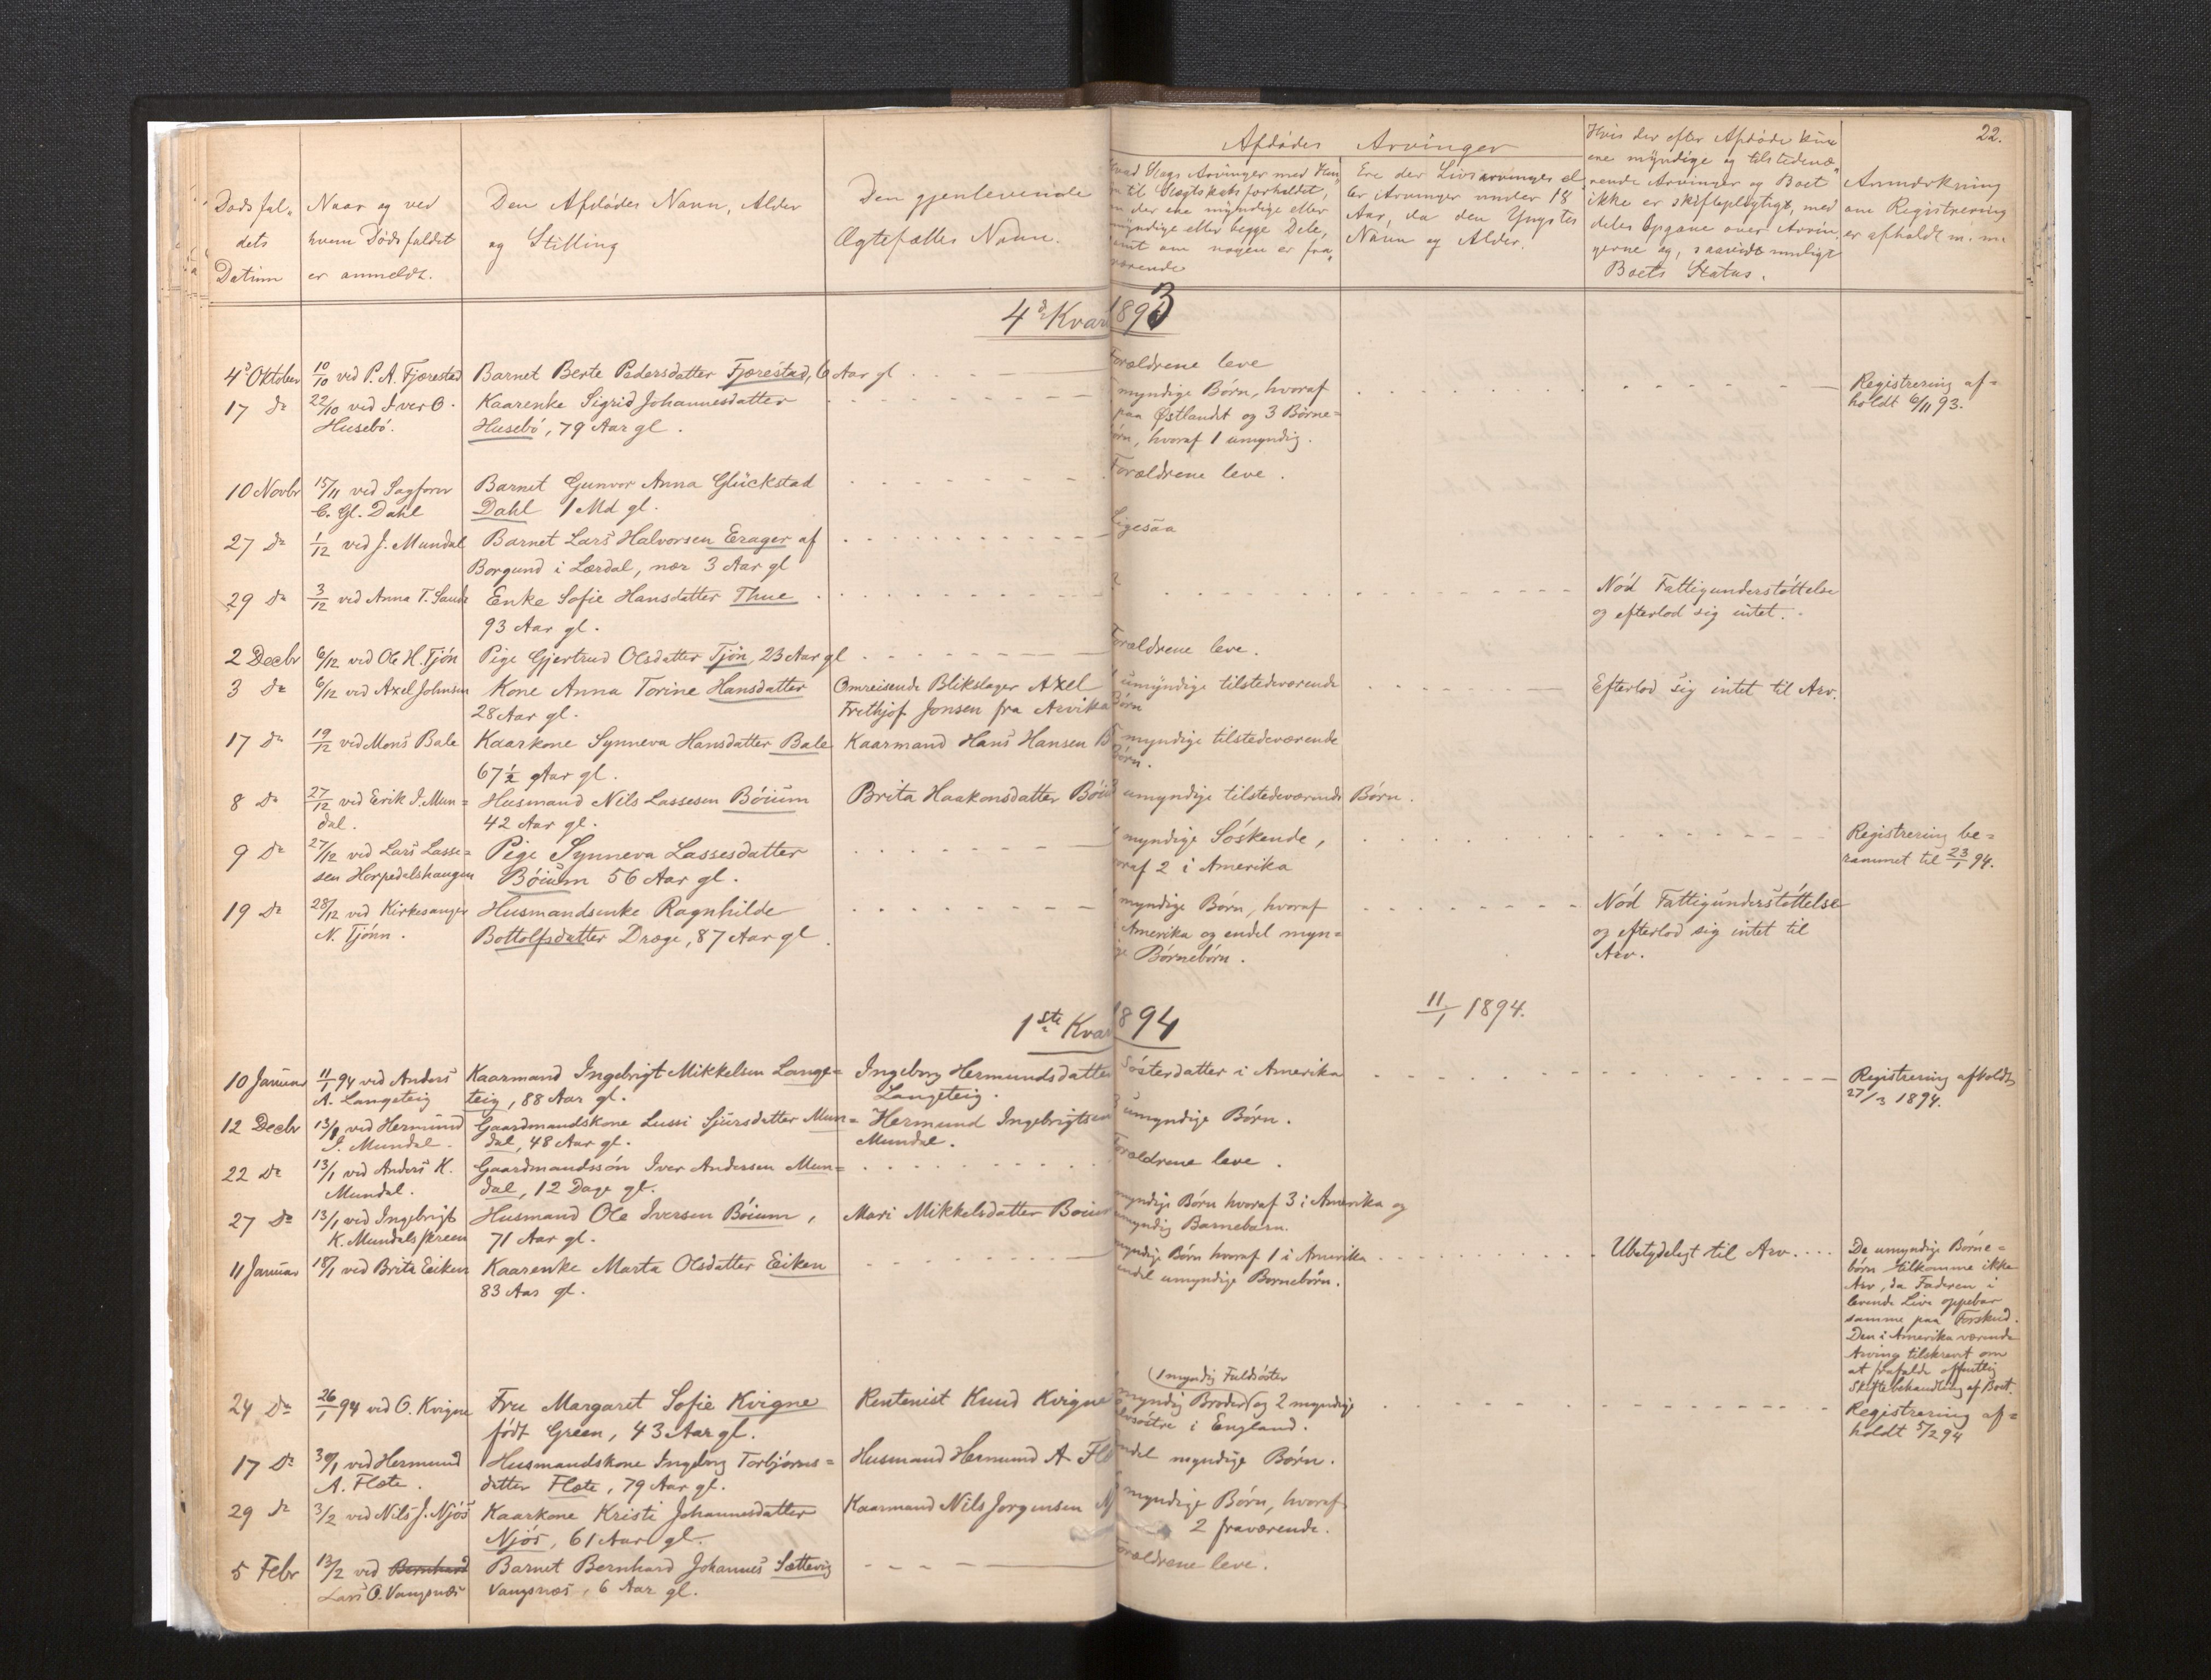 22.
Afdødes Arvinger
Dødsfal-
dets
Datum
Naar og ved
hvem Dødsfaldet
er anmeldt.
Den Afdødes Navn, Alder
og Stilling
Den gjenlevende
Ægtefælles Navn.
Slags Arvinger med
til Slægtskabsforholdet,
der ere myndige eller
myndige eller begge Dele,
samt om nogen er fra-
værende
Ere der Livsarvinger el-
ler Arvinger under 18
Aar, da den Yngstes
Navn og Alder.
Hvis der efter Afdøde kun
ere myndige og tilstedevæ-
rende Arvinger og Boet
ikke er skiftepligtigt, med
deles Opgave over Arvin-
gerne og, saavidt muligt
Boets Status.
Anmærkning
om Registrering
er afholdt m. m.
4d Kvar 1893
4d Oktober 10/10 ved P. A. Fjærestad Barnet Berte Pedersdatter Fjærestad, 6 Aar gl Forældrene leve
17 do 22/10 ved Iver O. Husebö. Kaarenke Sigrid Johannesdatter
Husebö, 79 Aar gl.
myndige Børn, hvoraf
paa Østlandet og 3 Børne=
børn, hvoraf 1 umyndig.
Registrering af=
holdt 6/11 93.
10 Novbr 15/11 ved Sagfører
C. Gl. Dahl
Barnet Gunvor Anna Glückstad
Dahl 1 Md gl.
Forældrene leve.
27 do 1/12 ved J. Mundal Barnet Lars Halvorsen Erager af
Borgund i Lærdal, nær 3 Aar gl
Ligesaa
29 do 3/12 ved Anna T. Sande Enke Sofie Hansdatter Thue
93 Aar gl.
?
Nød Fattigunderstøttelse
og efterlod sig intet.
2 Decbr 6/12 ved Ole H. Tjön Pige Gjertrud Olsdatter Tjön, 23 Aar gl Forældrene leve.
3 do 6/12 ved Axel Johnsen Kone Anna Torine Hansdatter
28 Aar gl.
Omreisende Blikslager Axel
Frithjof Jonsen fra Arvika
umyndige tilstedeværende
Børn
Efterlod sig intet til Arv.
17 do 19/12 ved Mons Bale Kaarkone Synneva Hansdatter Bale
67 1/2 Aar gl.
Kaarmand Hans Hansen B
myndige tilstedeværende
Børn.
8 do 27/12 ved Erik J. Mun=
dal.
Husmand Nils Lassesen Böium
42 Aar gl.
Brita Haakonsdatter Böiu
umyndige tilstedeværende Børn.
9 do 27/12 ved Lars Lasse=
sen Horpedalshaugen
Pige Synneva Lassesdatter
Böium 56 Aar gl.
myndige Söskende,
hvoraf 2 i Amerika
Registrering be=
rammet til 23/1 94.
19 do 28/12 ved Kirkesanger
N. Tjönn.
Husmandsenke Ragnhilde
Bottolfsdatter Dræge, 87 Aar gl.
myndige Børn, hvoraf
Amerika og endel myn=
dige Børnebørn.
Nød Fattigunderstøttelse
og efterlod sig intet til
Arv.
11/1 1894.
1ste Kvar 1894
10 Januar 11/1 94 ved Anders
A. Langeteig
Kaarmand Ingebrigt Mikkelsen Lange=
teig, 88 Aar gl.
Ingeborg Hermundsdatter
Langeteig.
Søsterdatter i Amerika
Registrering afholdt
27/3 1894.
12 Decbr 13/1 ved Hermund
I. Mundal.
Gaardmandskone Lussi Sjursdatter Mun=
dal, 48 Aar gl.
Hermund Ingebrigtsen
Mundal.
umyndige Børn.
22 do 13/1 ved Anders K.
Mundal.
Gaardmandssøn Iver Andersen Mun=
dal, 12 Dage gl.
Forældrene leve.
27 do 13/1 ved Ingebrigt
K. Mundalsskreen
Husmand Ole Iversen Böium,
71 Aar gl.
Mari Mikkelsdatter Böiu
myndige Børn hvoraf 3 i Amerika og
umyndig Barnebarn.
11 Januar 18/1 ved Brita Eiken Kaarenke Marta Olsdatter Eiken
83 Aar gl.
myndige Børn hvoraf 1 i Amerika
endel umyndige Børnebørn.
Ubetydeligt til Arv.
De umyndige Børne=
børn tilkomme ikke
Arv, da Faderen i
levende Live oppebar
samme paa Forskud.
Den i Amerika værende
Arving tilskrevet om
at frafalde offentlig
Skiftebehandling af Boet.
24 do 26/1 94 ved O. Kvigne Fru Margaret Sofie Kvigne
født Green, 43 Aar gl.
Rentenist Knud Kvigne
(1 myndig Fuldsøster
myndig Broder) og 2 myndige
Halvsøstre i England.
Registrering af=
holdt 5/2 94
17 do 30/1 ved Hermund
A. Flete.
Husmandskone Ingeborg Torbjørns=
datter Flete, 79 Aar gl.
Husmand Hermund A. Fle
endel myndige Børn.
29 do 3/2 ved Nils J. Njös Kaarkone Kristi Johannesdatter
Njös, 61 Aar gl.
Kaarmand Nils Jørgensen Nj
myndige Børn, hvoraf
2 fraværende.
5 Febr 13/2 ved Bernhard
Lars O. Vangsnæs
Barnet Bernhard Johannes Sættevig
Vangsnæs, 6 Aar gl.
Forældrene leve.